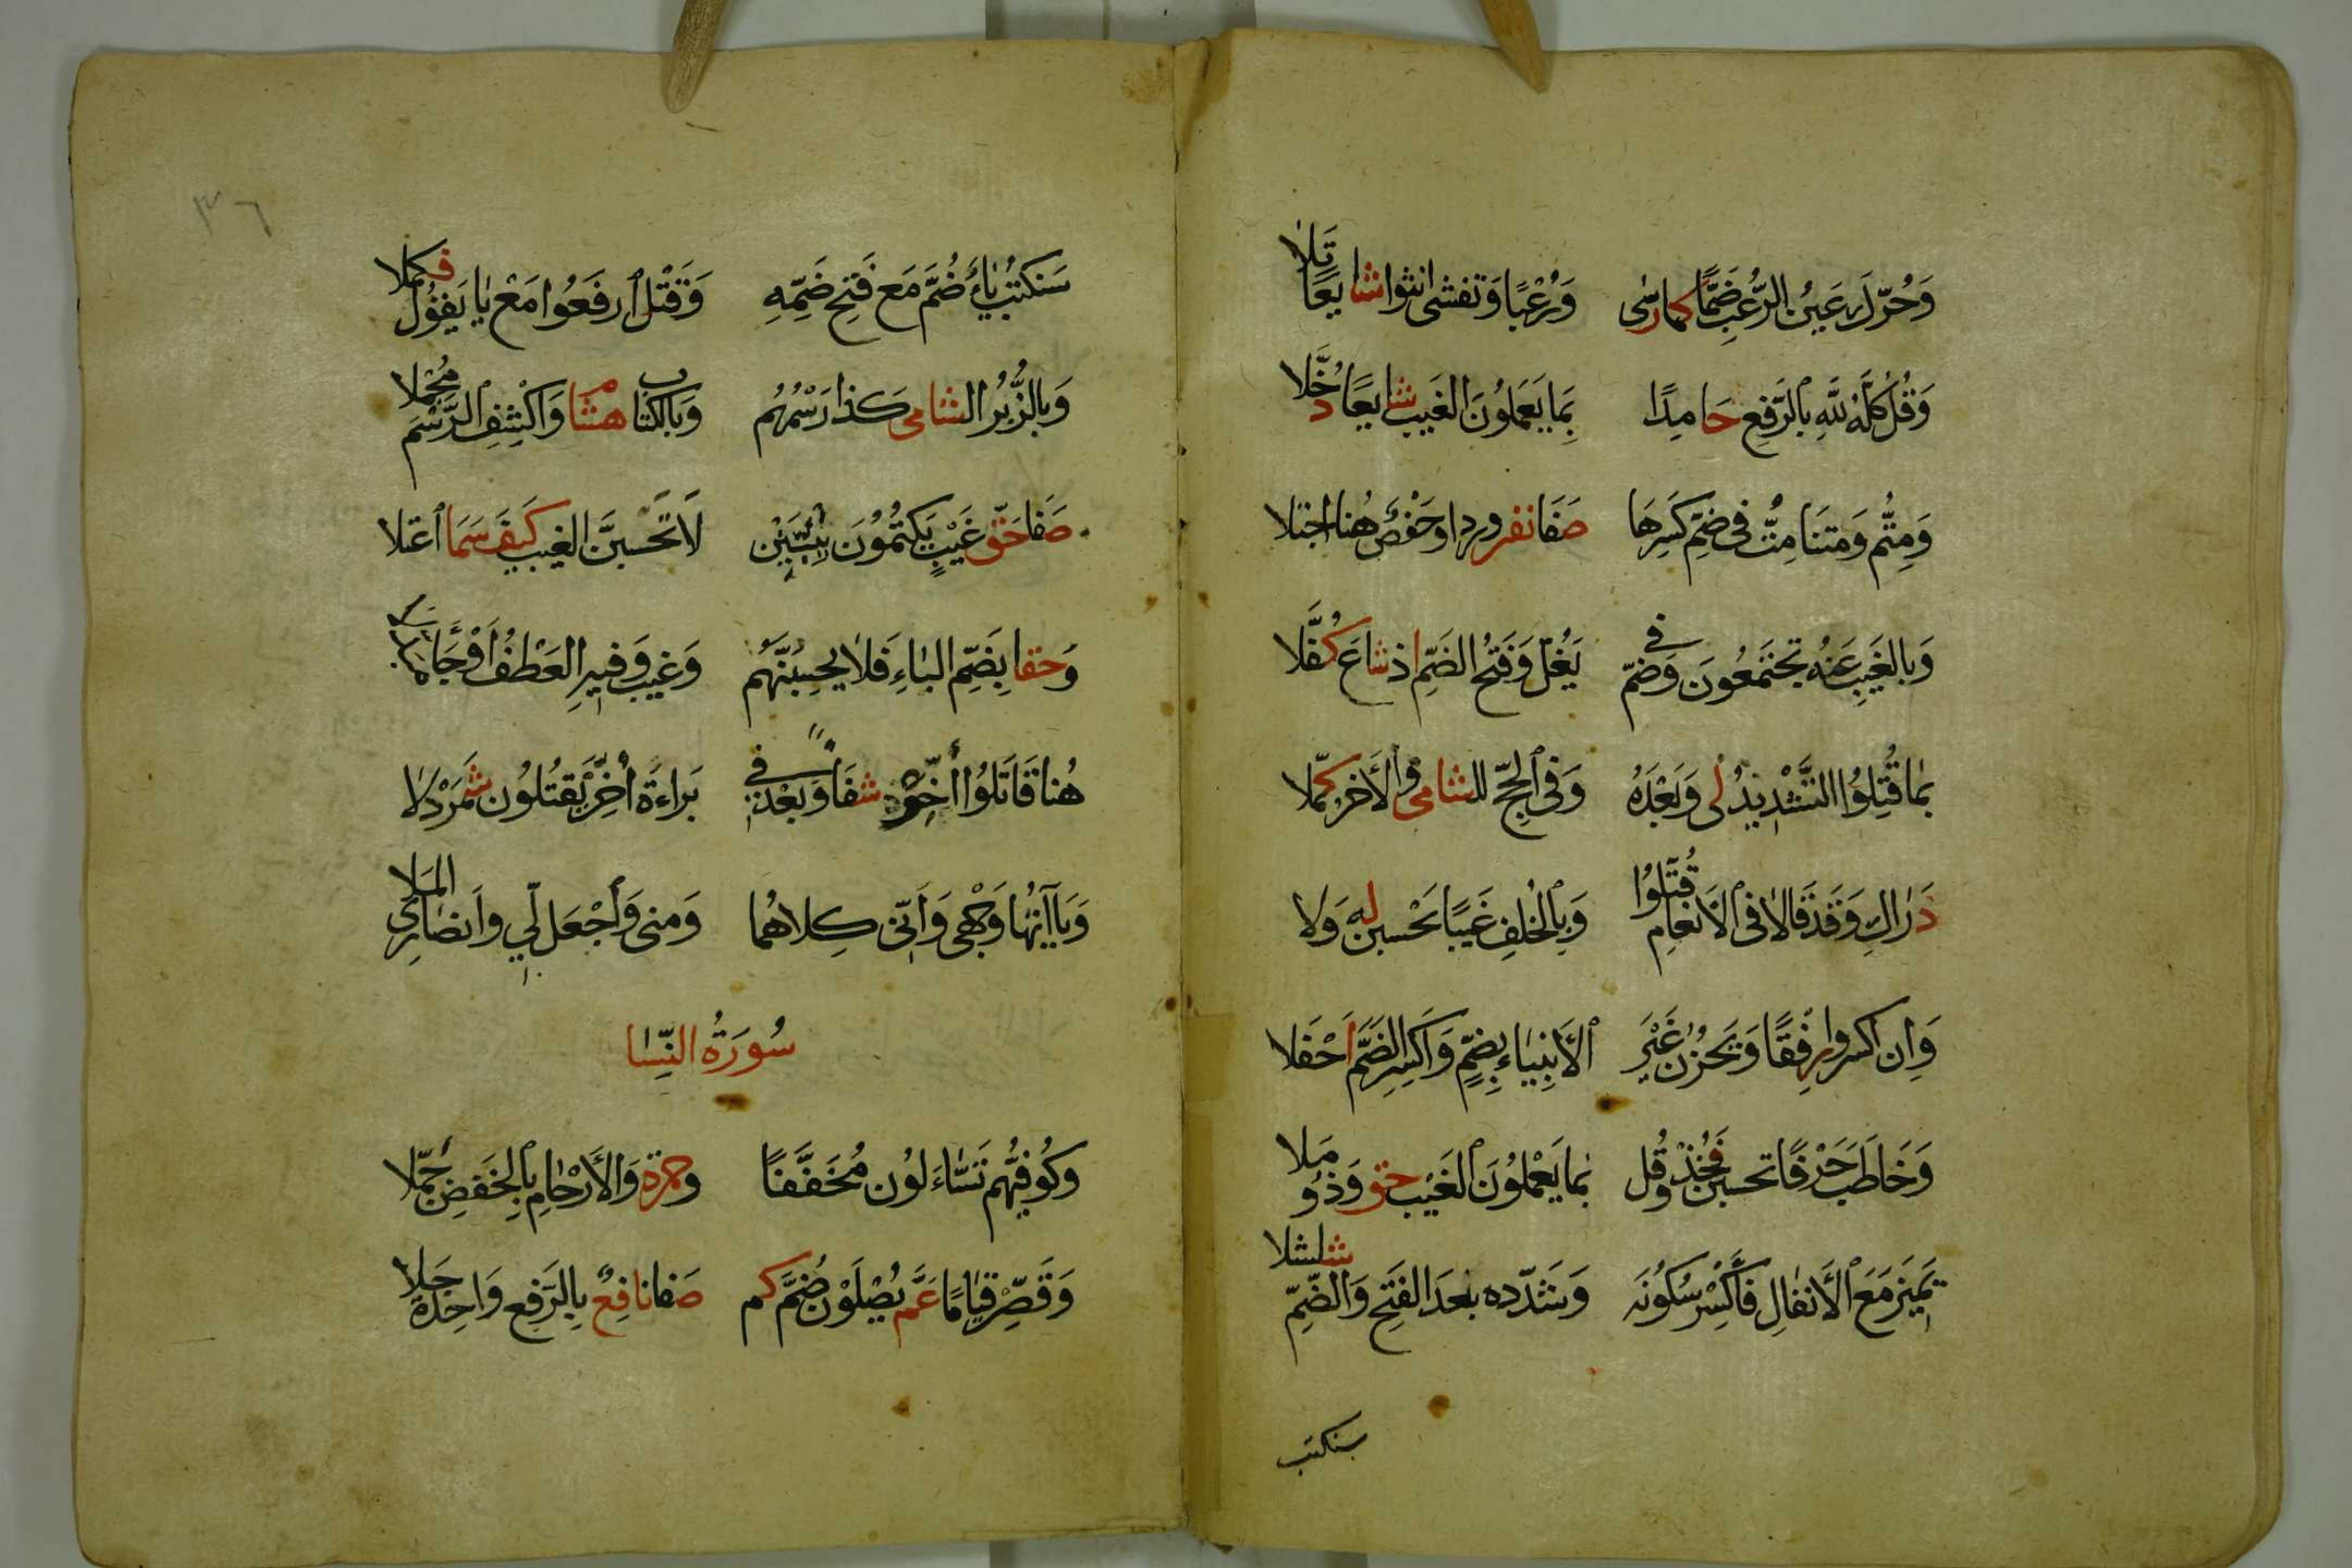 وَحُرِّكَ عَينُ الرُّعبِ ضَمًّا كما رسٰى وَرُعْبًا وَتغشى انثوا شايعًا تَلا
وَقُل كُلَّهُ لِلّٰهِ بالرَّفعِ حَامِدًا بِمَا يَعمَلُونَ الغَيب شايعًا دُخَّلا
وَمِتُّم وَمتنَا مِتُّ في ضمِّ كَسرِهَا صَفَا نفر وردا وَحَفصٌ هُنا اجتلا
وَبالغَيبِ عَنهُ تجتَمَعُونَ وَضمّ في يَغُلّ وَفَتحُ الضَمِّ اذ شاعَ كُفَّلا
بمٰا قُتِلوُا التَّشْدِيدُ لٰى وَبَعْدَهُ وَفي الحجّ للشامى والأخر كمّلا
دَرٰاكِ وَقَد قَالٰا فى الأنعامِ قُتّلوُا وَبالخُلفِ غَيبًا تَحْسبن له وَلا
وَاِن اكسروا رِفقًا وَيَحزُن غَيْر الأنبيٰاءِ بِضمٍّ وَاكسِرِ الضَمَّ اَحْفَلا
وَخَاطَبَ حَرْفًا تحسبن فَخُذْ وَقُل بمٰا يَعْملُونَ الغَيْب حق وَذُو مَلا
يَمِيزَ مَعَ الأنفٰالِ فَاكْسِرْ سُكوُنَه وَشَدّده بعدَ الفَتحِ وَالضّمِّ شلشلا
سنكتب
٣٦
سَنَكتُبُ يٰاءٌ ضُمَّ مَع فَتحِ ضَمِّهِ وَقَتْلَ ارفَعُوا مَعْ يٰا يَقوُلُ فَيكمُلا
وَبالزُّبُرِ الشامى كَذا رَسْمُهُم وَبالكتاب هشٰا م وَاكْشِفِ الرَّسْمَ مُجْمِلا
صَفا حَقّ غَيْبٍ يَكتُمُونَ يُبَيّنُنْ لَا تَحْسبنَّ الغيب كَيفَ سَمَا اعتلا
وَحقا بِضَمِّ البٰاءِ فَلا يحسِبُنَّهُم وَغيب وَفيهِ العَطْفُ اَوْ جَا مُبدلا
هُنا قَاتَلُوُا أَخِّرْ شفَا وَبَعْدُ في بَراءَةَ أَخّرْ يَقتُلُونَ شَمَرْدَلا
وَيَاآتهُا وَجْهى وَاِنّى كِلاهُما وَمنى وَاَجْعَل لّي وانصٰارِىَ المَلا
سُورَةُ النِّسٰا
وَكوُفيُّهُم تَسَّاءَلوُن مُخَفَّفًا وحمزة وَالأَرْحٰامِ بالخَفضِ جَمّلا
وَقَصِّرْ قيٰامًا عَمَّ يُصْلَوْن ضُمَّ كم صَفا نافِعٌ بِالرَّفعِ وَاحِدةٌ جَلا